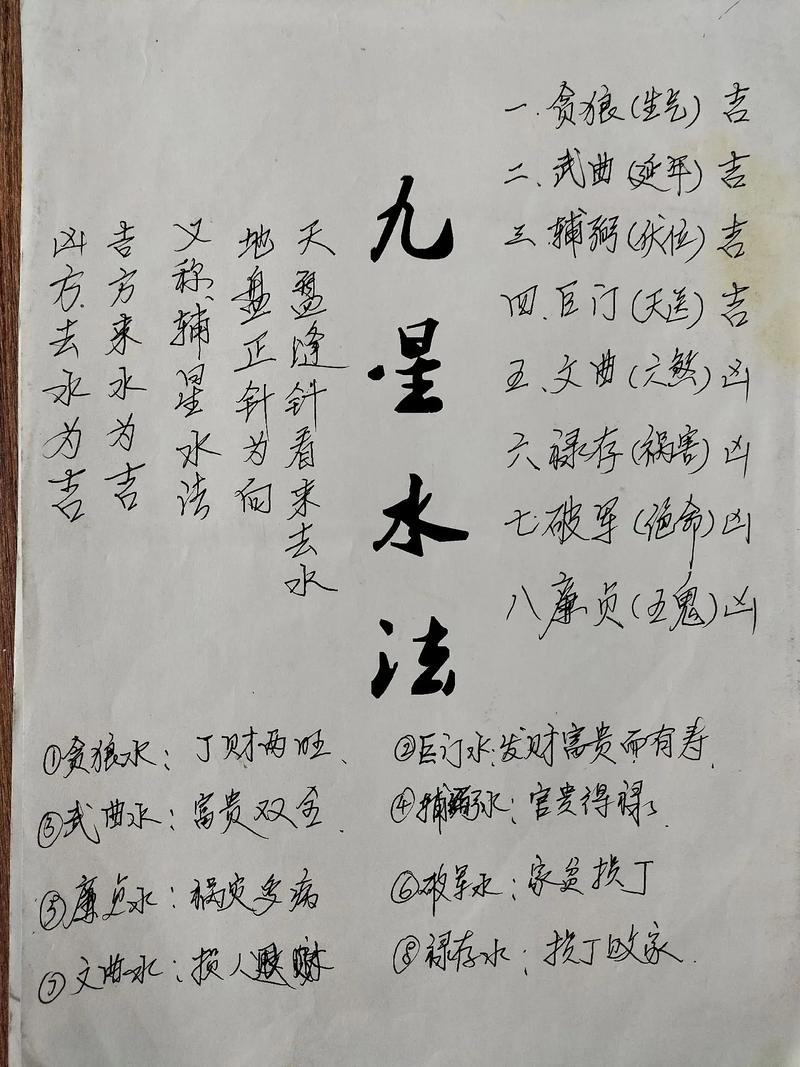 九星水法
一.贪狼(生气)吉
二、武曲(延年)吉
三.辅弼(伏位)吉
四.巨门(天医)吉
五.文曲(六煞)凶
六禄存(祸害)凶
七.破军(绝命)凶
八廉贞(五鬼)凶
天盘缝针看来去水
地盘正针为向
又称辅星水法
吉方来水为吉
凶方去水为吉
①贪狼水：丁财两旺、
②巨门水:发财富贵而有寿.
③武曲水：富贵双全.
④辅弼水：官贵得禄
⑤廉贞水：祸灾多病
⑥破军水：家贫损丁
⑦文曲水：损人退财
⑧禄存水：损丁败家.